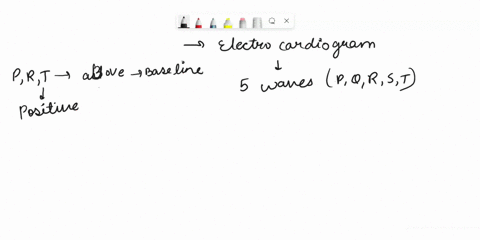 → Electro cardiogram
↓
P, R, T → above → Baseline
↓
Positive
5 waves (P, Q, R, S, T)